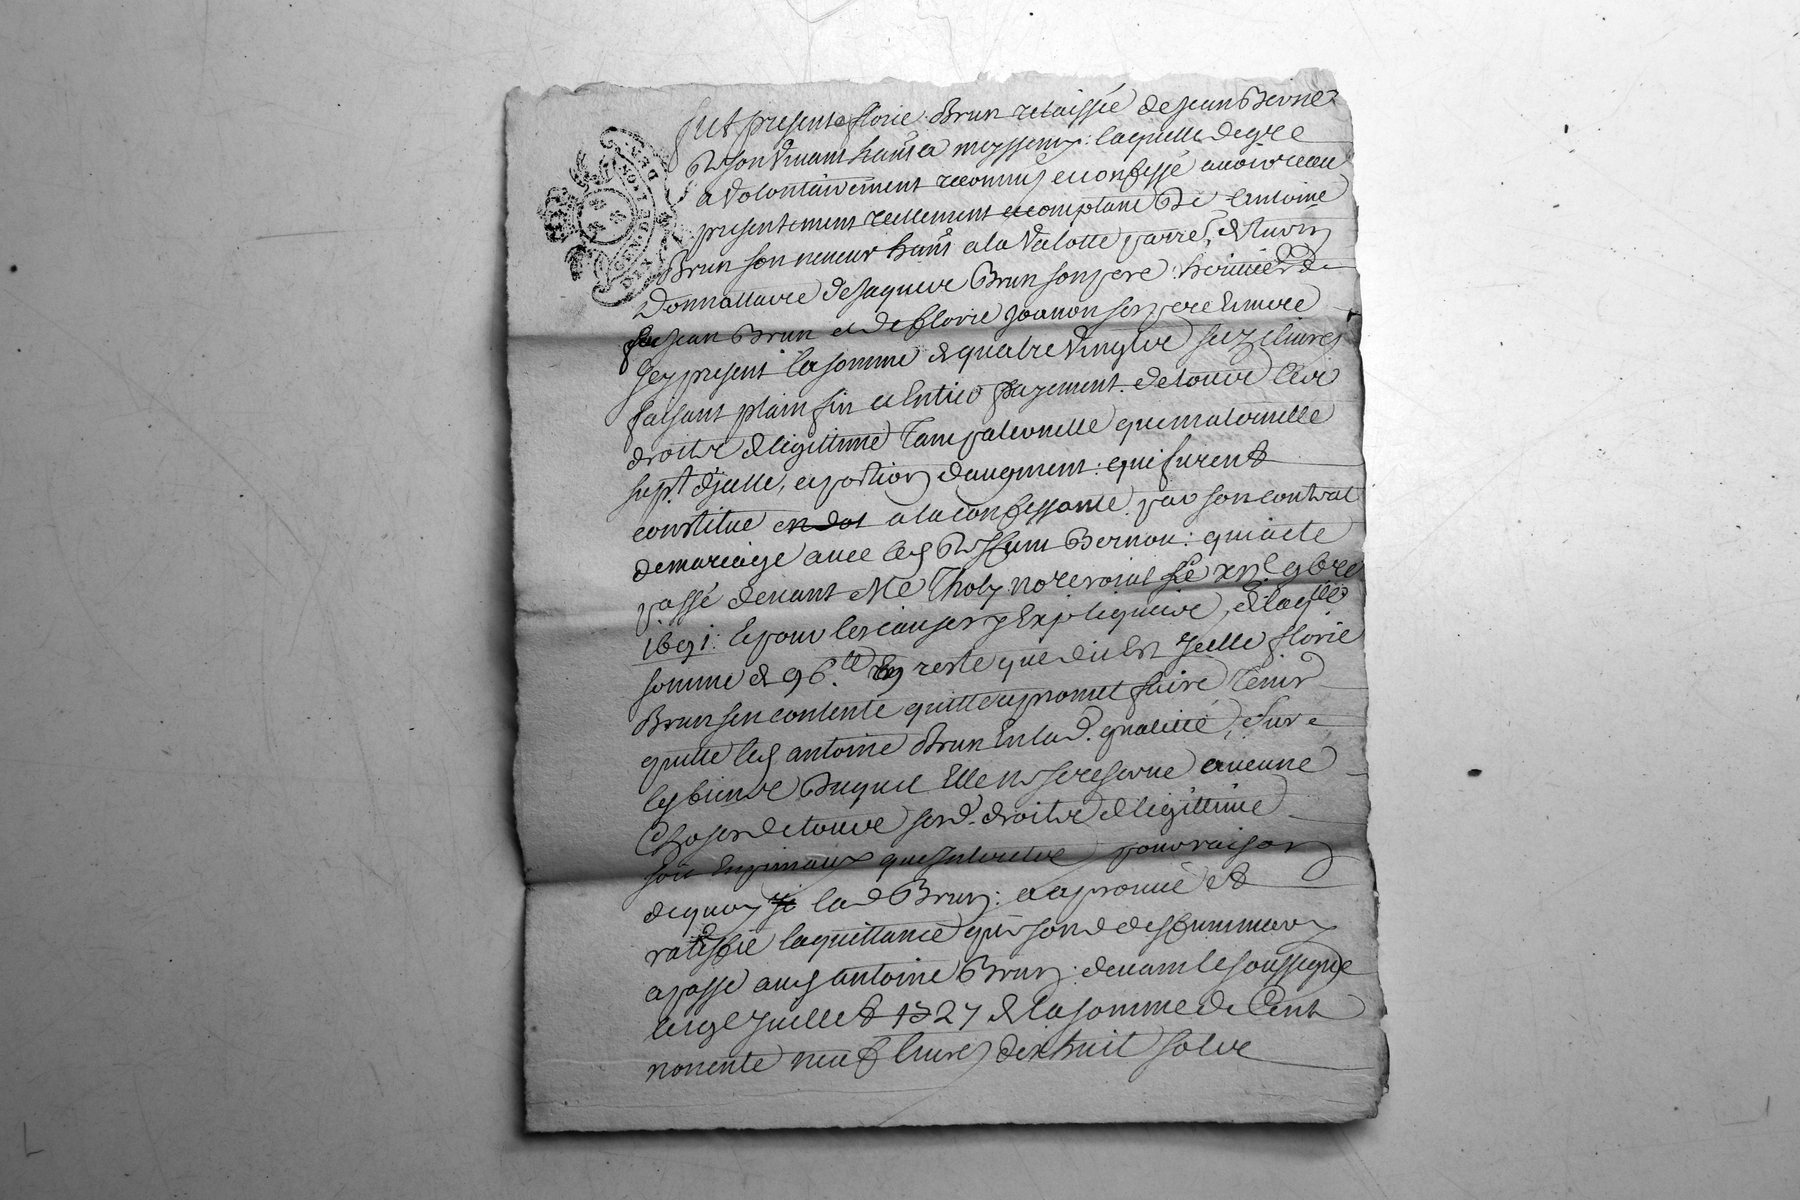 fut presente florie Brun relaissée de Jean Berne
vivant hant a meyssenis laquelle de gre
a volontairement reconnus et confessé avoir reçu
presentement reellement et comptant de Antoine
Brun son neveur hant a la Valotte parre
Donnattaire de Jaques Brun son pere heritier de
feu Jean Brun et de florie Joanon ses pere et mere
Icy present la somme de quatre vingtz seize livres
faisant plain fin et entier payement de touts ses
droits de legittime tant paternelle que maternelle
supt d'jcelle, et portion daugment qui furent
constitue en dot a la confessante par son contrat
de mariage avec led Bernou: qui acte
passé devant Me Tholy nore royal le 9bre
1691: et pour les causes y expliquees, de laqlle
somme de 96 ll en reste que dit est Jcelle florie
Brun sen contente quitte et promet faire tenir
quitte led antoine Brun en lad. qualité, sur
les biens duquel Elle ne se reserve aucune
chose de touts sesd. droits de legittime
soit en principaux que Interets pour raison
dequoy lad Brun: a aprouvé et
ratiffié la quittance que son d
a passé aud antoine Brun: devant le soussigné
le 19e Juillet 1727 de la somme de Cent
nonente neuf livres dix huit sols